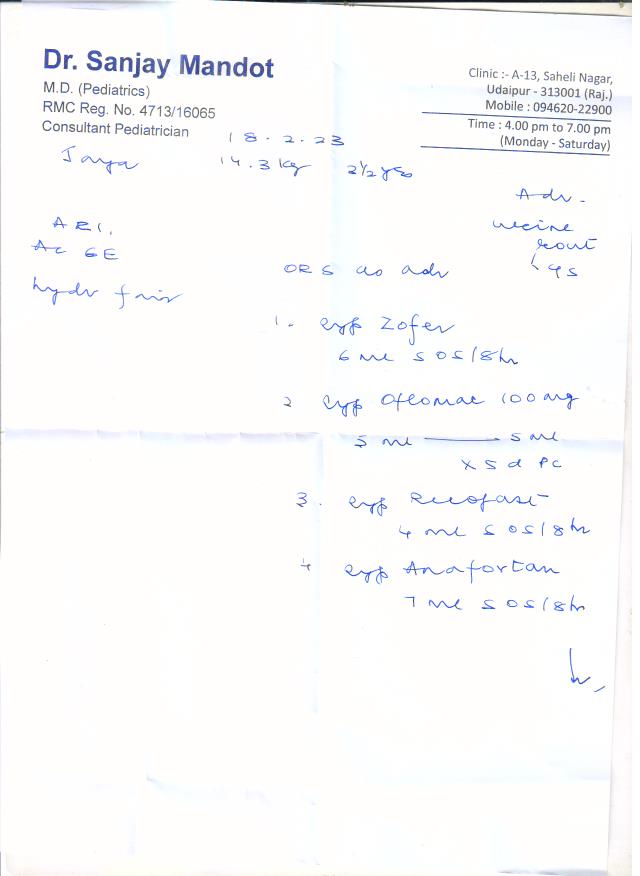 Dr. Sanjay Mandot
M.D. (Pediatrics)
RMC Reg. No. 4713/16065
Consultant Pediatrician
Clinic :- A-13, Saheli Nagar,
Udaipur - 313001 (Raj.)
Mobile : 094620-22900
Time : 4.00 pm to 7.00 pm
(Monday - Saturday)
18.2.23
Jaya 14.3 kg 2½ yrs
Adv.
urine
rout
ARI,
Ac GE
hydr fair
ORS as adv
1. syp Zofer
6 ml SOS/8hr
2 syp Oflomac 100 mg
5 ml — 5 ml
x 5 d PC
3. syp
4 ml SOS/8hr
4 syp Anafortan
7 ml SOS/8hr